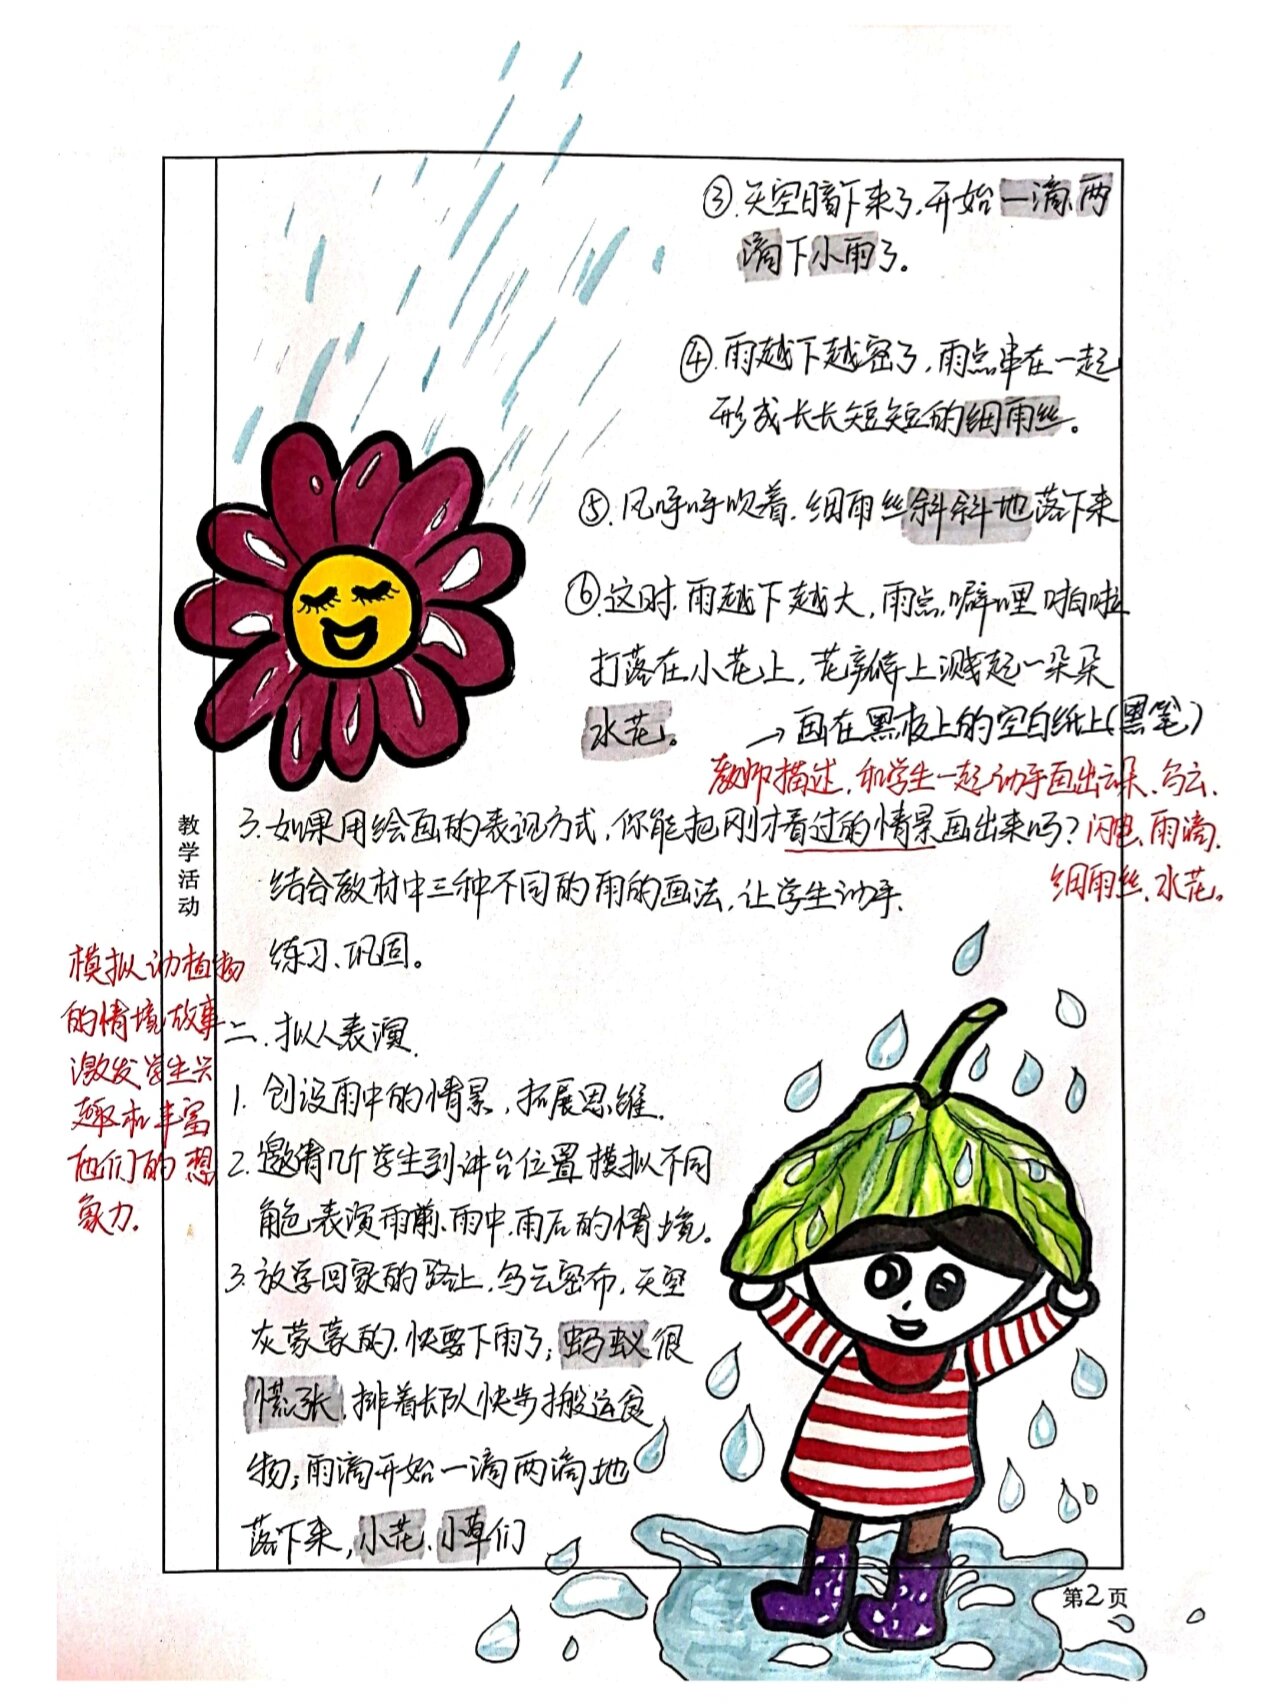 ③.天空暗下来了,开始一滴、两
滴下小雨了。
④.雨越下越密了,雨点串在一起
形成长长短短的细雨丝。
⑤.风呼呼吹着,细雨丝斜斜地落下来
⑥.这时,雨越下越大,雨点噼哩啪啦
打落在小花上,花瓣上溅起一朵朵
水花。
→画在黑板上的空白纸上(黑笔)
教师描述,和学生一起动手画出云朵、乌云、
闪电、雨滴、
细雨丝、水花。
3.如果用绘画的表现方式,你能把刚才看过的情景画出来吗?
结合教材中三种不同的雨的画法,让学生动手、
练习、巩固。
教学活动
模拟动植物
的情境故事
激发学生兴
趣和丰富
他们的想
象力.
二.拟人表演.
1.创设雨中的情景,拓展思维.
2.邀请几个学生到讲台位置模拟不同
角色表演雨前、雨中、雨后的情境。
3.放学回家的路上,乌云密布,天空
灰蒙蒙的,快要下雨了;蚂蚁很
慌张,排着长队快步搬运食
物;雨滴开始一滴两滴地
落下来,小花、小草们
第2页